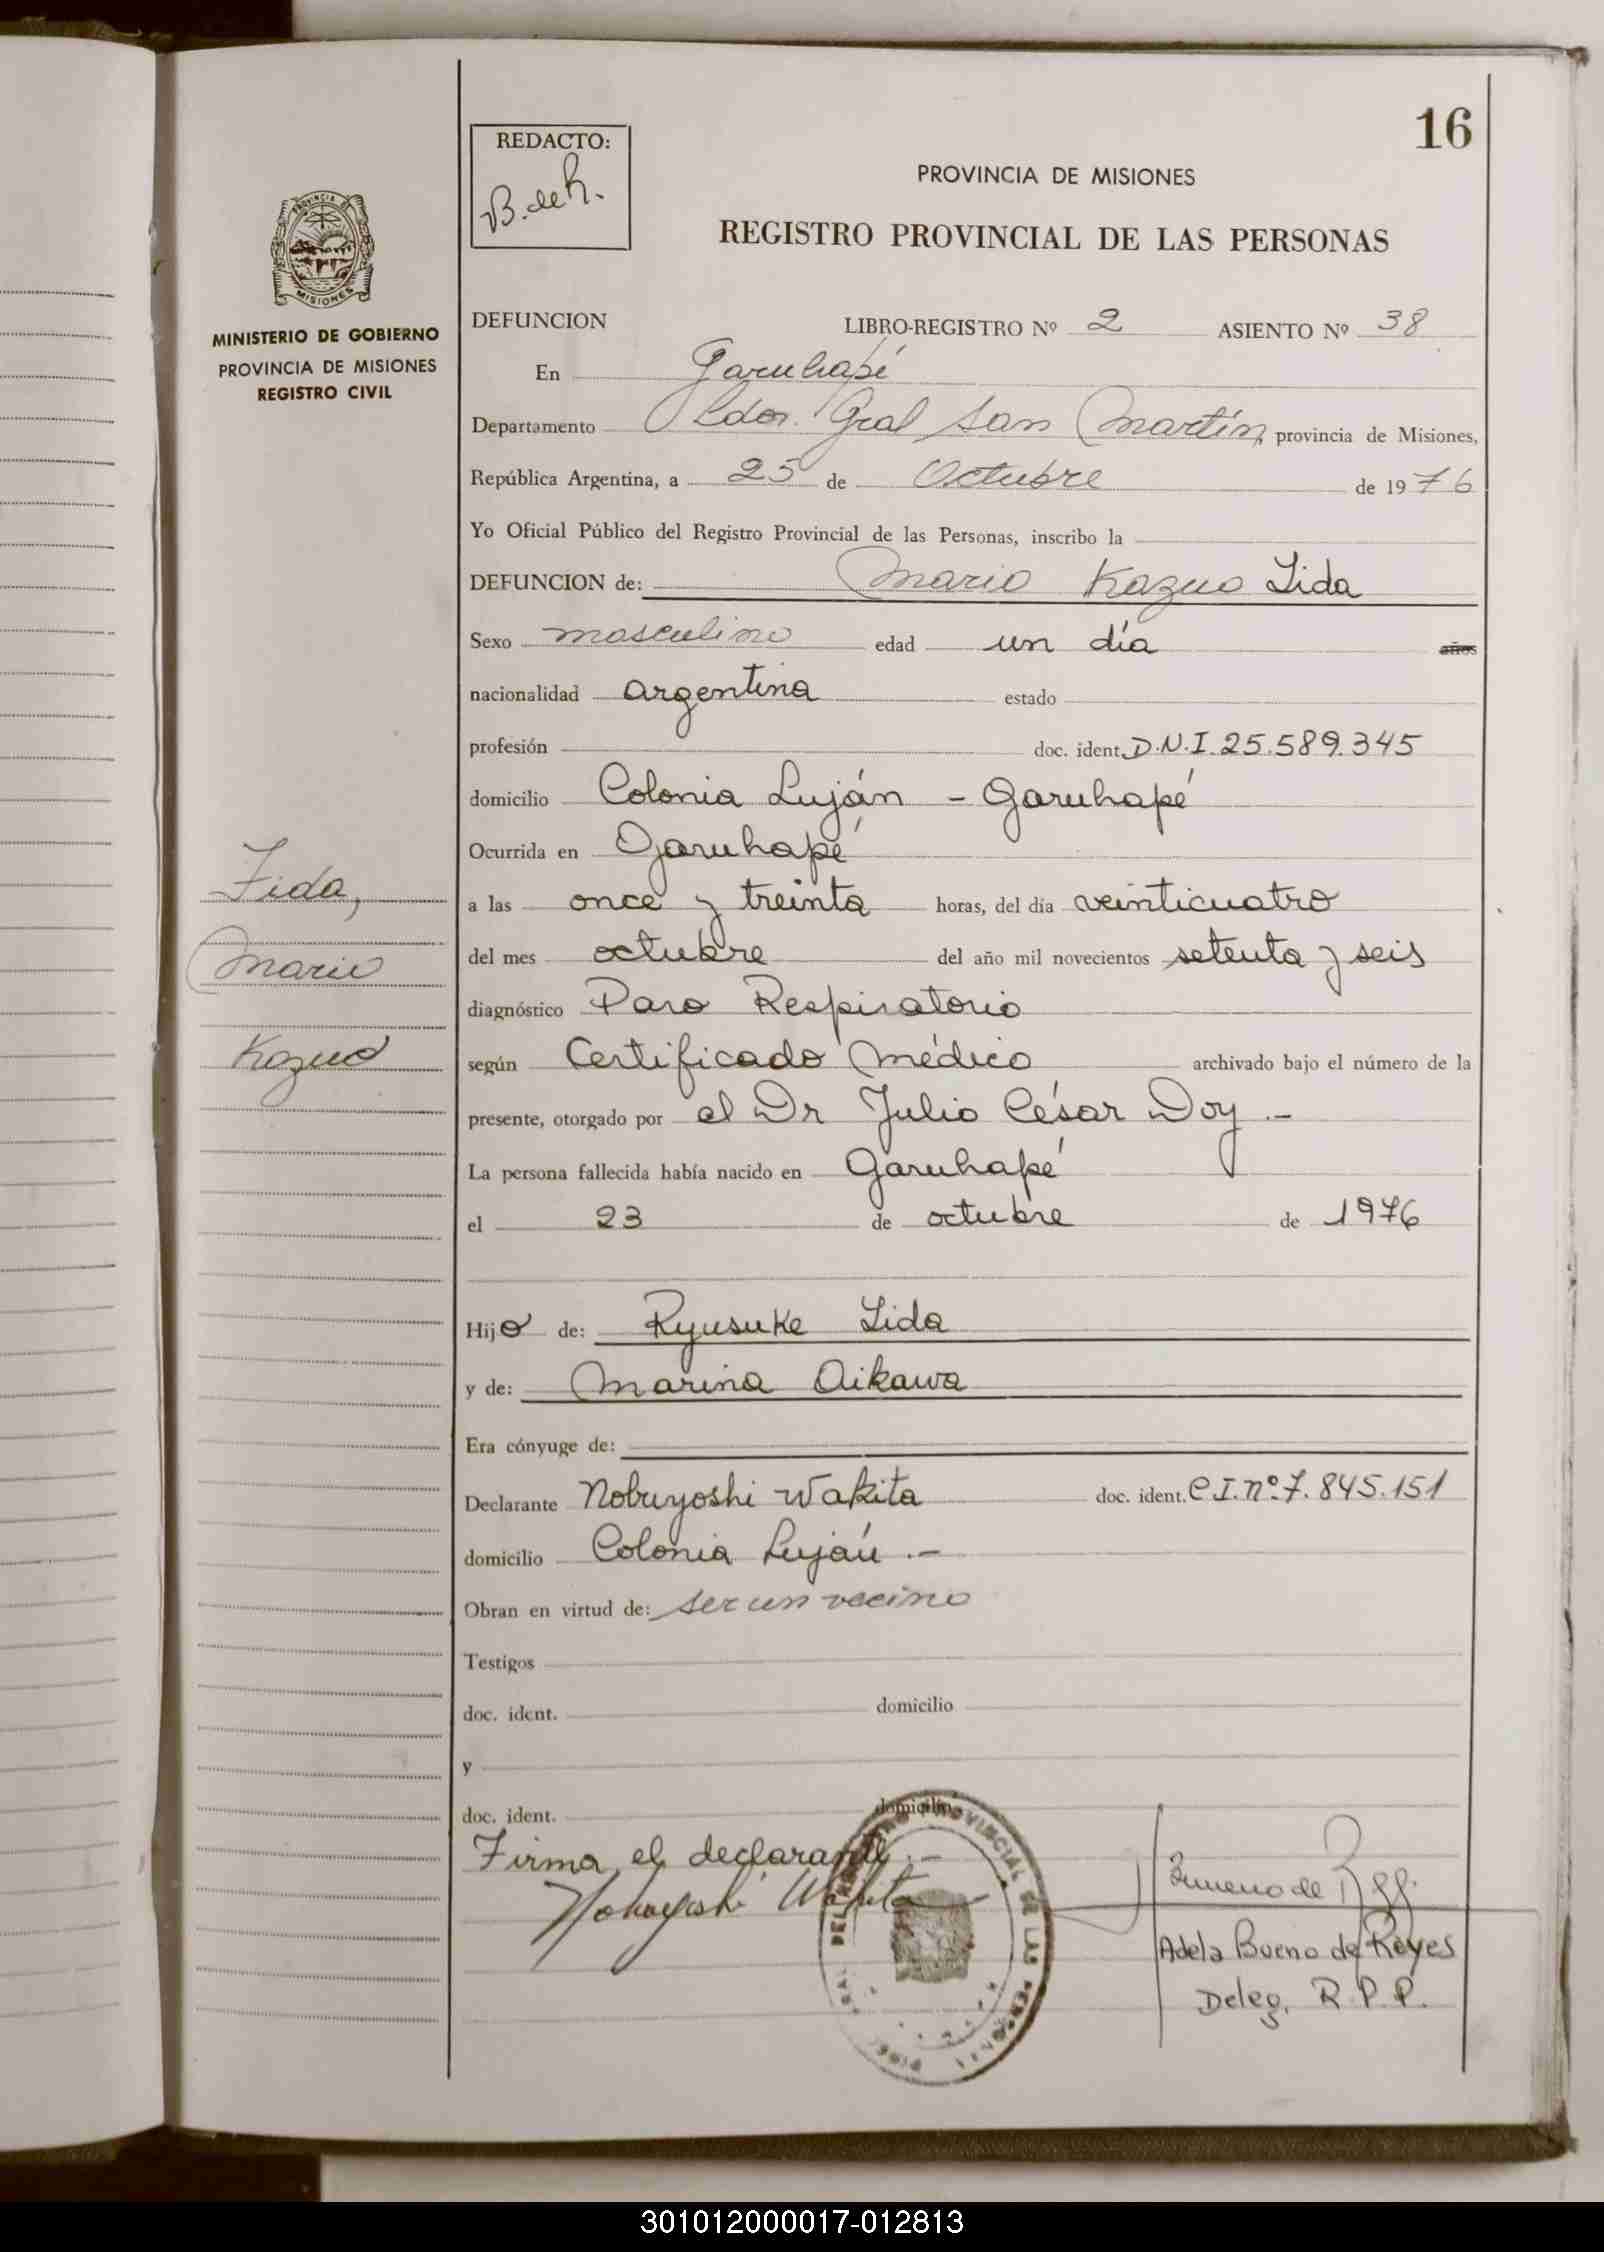 16
REDACTO:
B. de R.
PROVINCIA DE MISIONES
REGISTRO PROVINCIAL DE LAS PERSONAS
PROVINCIA DE MISIONES
MINISTERIO DE GOBIERNO
PROVINCIA DE MISIONES
REGISTRO CIVIL
DEFUNCION LIBRO-REGISTRO Nº 2 ASIENTO Nº 38
En Garuhapé
Departamento Ldor. Gral San Martín, provincia de Misiones,
República Argentina, a 25 de Octubre de 1976
Yo Oficial Público del Registro Provincial de las Personas, inscribo la
DEFUNCION de: Mario Kazuo Lida
Sexo masculino edad un día años
nacionalidad argentina estado
profesión doc. ident. D.N.I. 25.589.345
domicilio Colonia Luján - Garuhapé
Ocurrida en Garuhapé
a las once y treinta horas, del día veinticuatro
del mes octubre del año mil novecientos setenta y seis
diagnóstico Paro Respiratorio
según Certificado Médico archivado bajo el número de la
presente, otorgado por el Dr Julio César Doy .-
La persona fallecida había nacido en Garuhapé
el 23 de octubre de 1976
Hijo de: Ryusuke Lida
y de: Marina Aikawa
Era cónyuge de:
Declarante Nobuyoshi Wakita doc. ident. C.I. nº 7.845.151
domicilio Colonia Luján .-
Obran en virtud de: ser un vecino
Testigos
doc. ident. domicilio
y
doc. ident. domicilio
Firma el declarante .-
Nobuyoshi Wakita
Adela Bueno de Reyes
Deleg. R.P.P.
Lida,
Mario
Kazuo
301012000017-012813